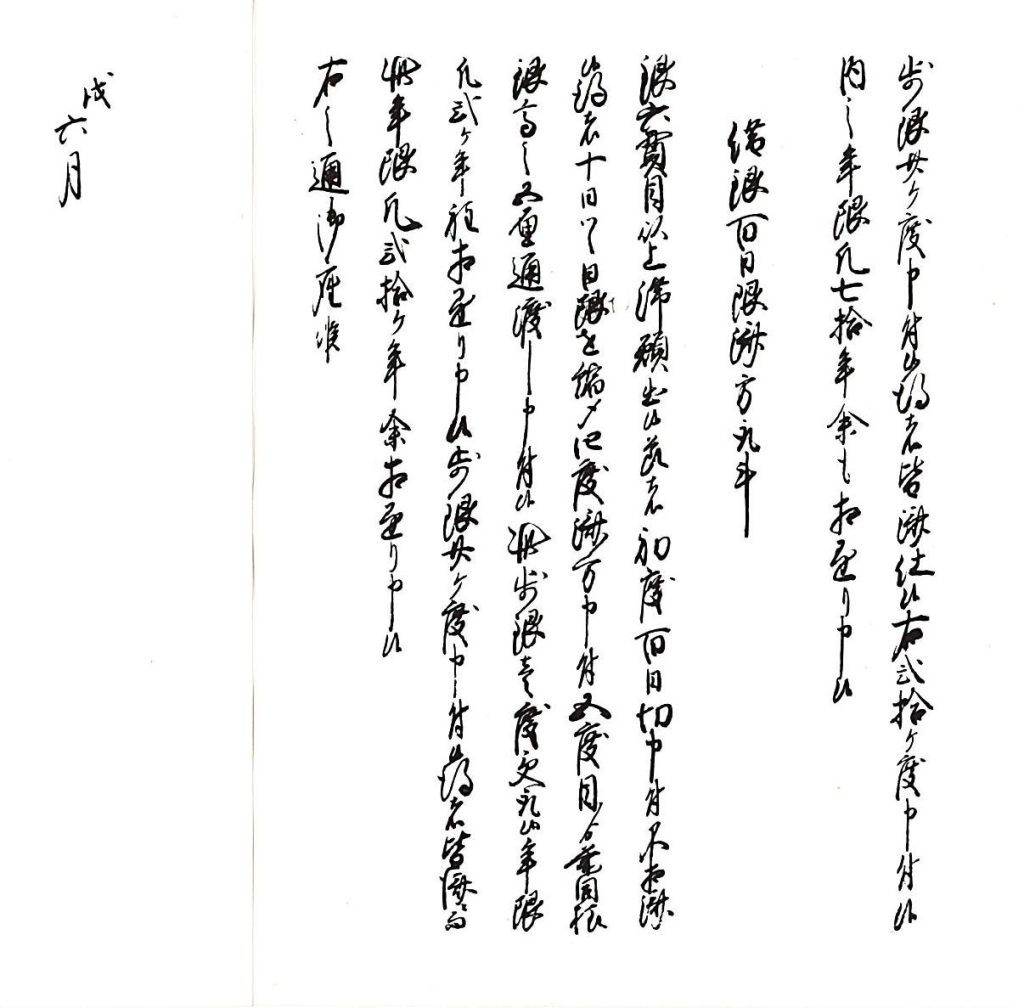 歩銀廿ヶ度申付候得者皆済仕候右弐拾ヶ度申付候
内之年限凡七拾年余も相延り申候
借銀百日限済方取斗
銀六貫目以上滞願出候節者初度百日切申付不相済
候得者十日ツヽ日限を縮メ四度済方申付五度目ゟ前同様
銀高之五厘通渡し申付候此歩銀壱度受取候年限
凡弐ヶ年程相延り申候歩銀廿ヶ度申付候得者皆済ニ而
此年限凡弐拾ヶ年余相延り申候
右之通御座候
戌六月